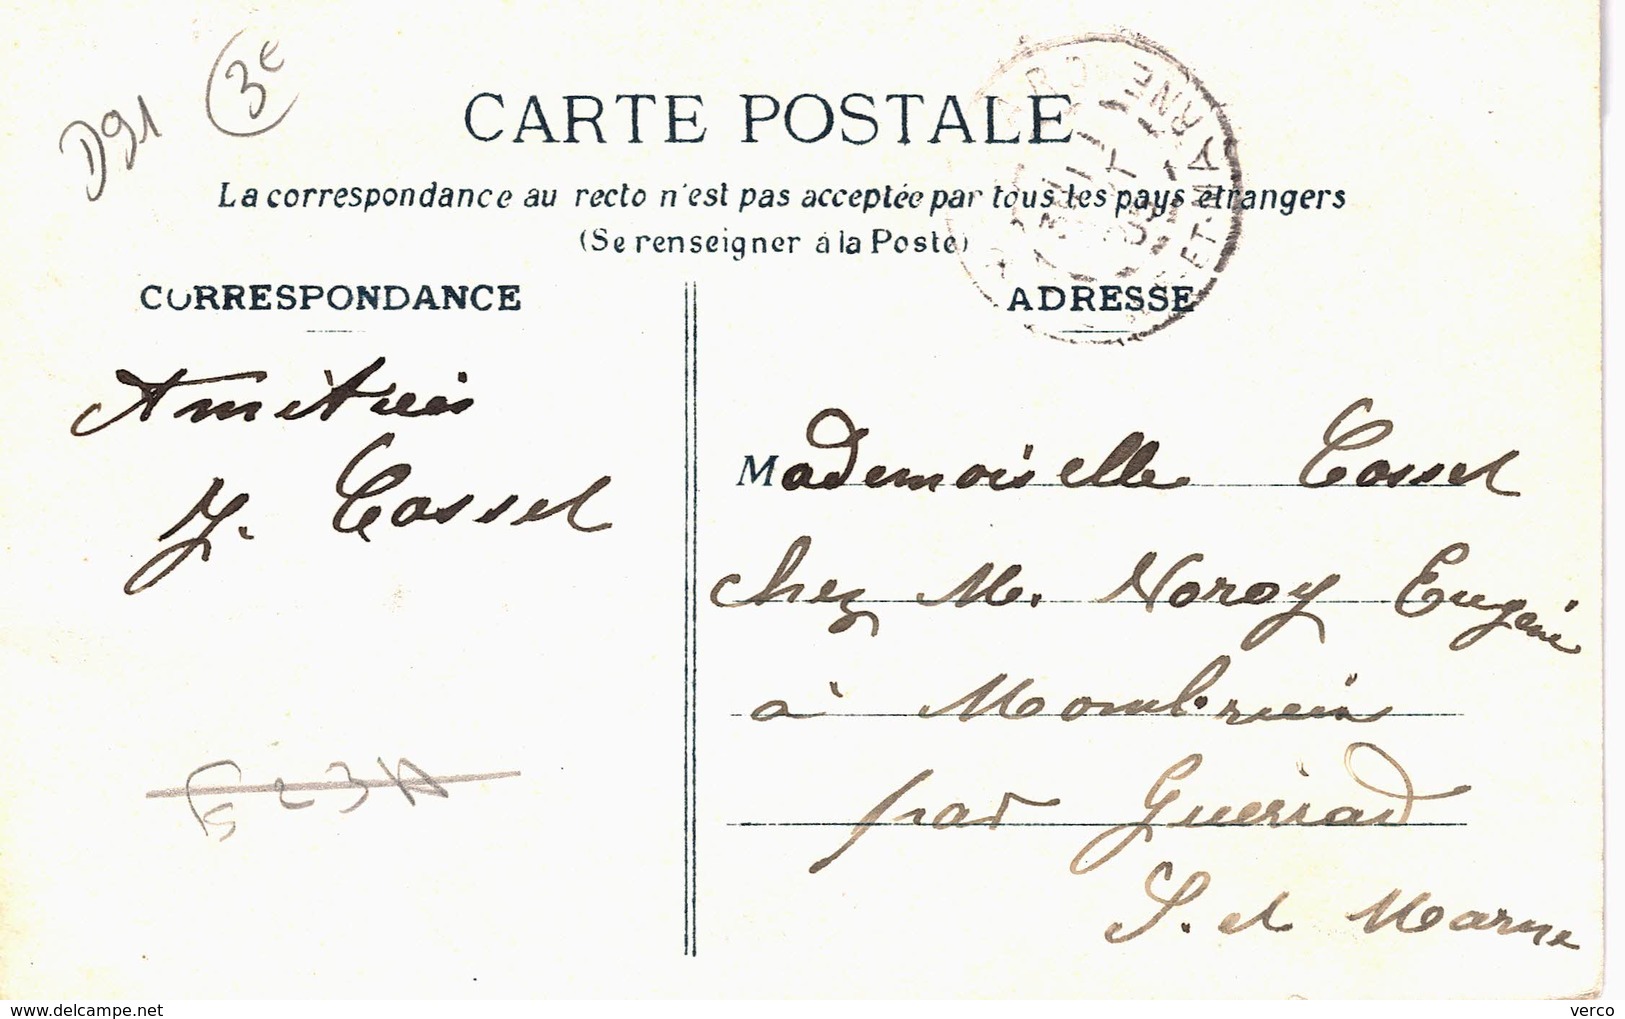 D91 3€
CARTE POSTALE
La correspondance au recto n'est pas acceptée par tous les pays étrangers
(Se renseigner à la Poste)
CORRESPONDANCE
ADRESSE
Amitiés
Y. Cossel
Mademoiselle Cossel
chez M. Noroy Eugène
à
par Guérard
S. et Marne
ET-MARNE
delcampe.net
verco